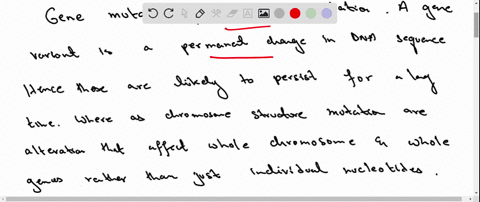 Gene muta ation. A gene
variant is a permanent change in DNA sequence
Hence those are likely to persist for a long
time. Where as chromosome structure mutation are
alteration that affect whole chromosome & whole
genes rather than just individual nucleotides.